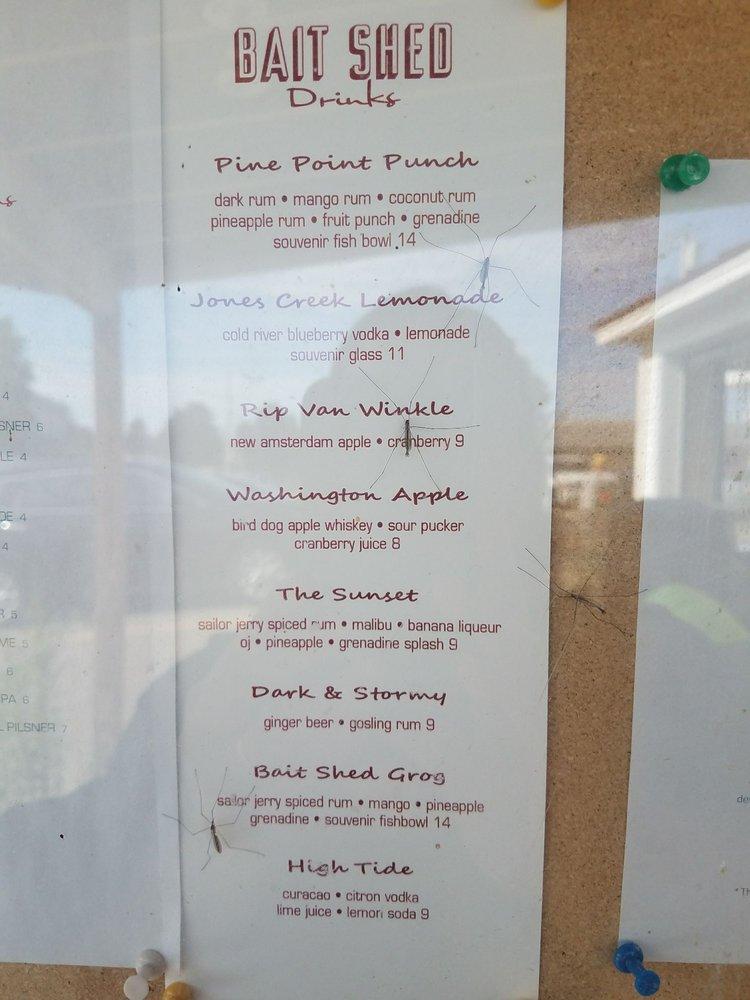 BAIT SHED
Drinks
Pine Point Punch
dark rum • mango rum • coconut rum
pineapple rum • fruit punch • grenadine
souvenir fish bowl 14
Jones Creek Lemonade
cold river blueberry vodka • lemonade
souvenir glass 11
Rip Van Winkle
new amsterdam apple • cranberry 9
Washington Apple
bird dog apple whiskey • sour pucker
cranberry juice 8
The Sunset
sailor jerry spiced rum • malibu • banana liqueur
oj • pineapple • grenadine splash 9
Dark & Stormy
ginger beer • gosling rum 9
Bait Shed Grog
sailor jerry spiced rum • mango • pineapple
grenadine • souvenir fishbowl 14
High Tide
curacao • citron vodka
lime juice • lemon soda 9
4
6
4
4
4
5
5
6
PA 6
PILSNER 7